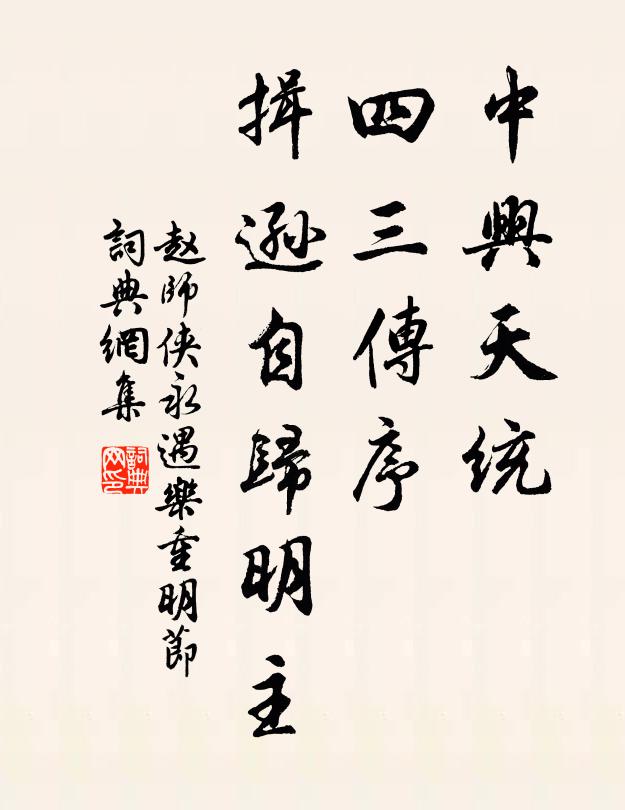 中興天統
四三傳序
揖遜自歸明主
赵師侠永遇樂重明節
詞典網集
詞典
网印